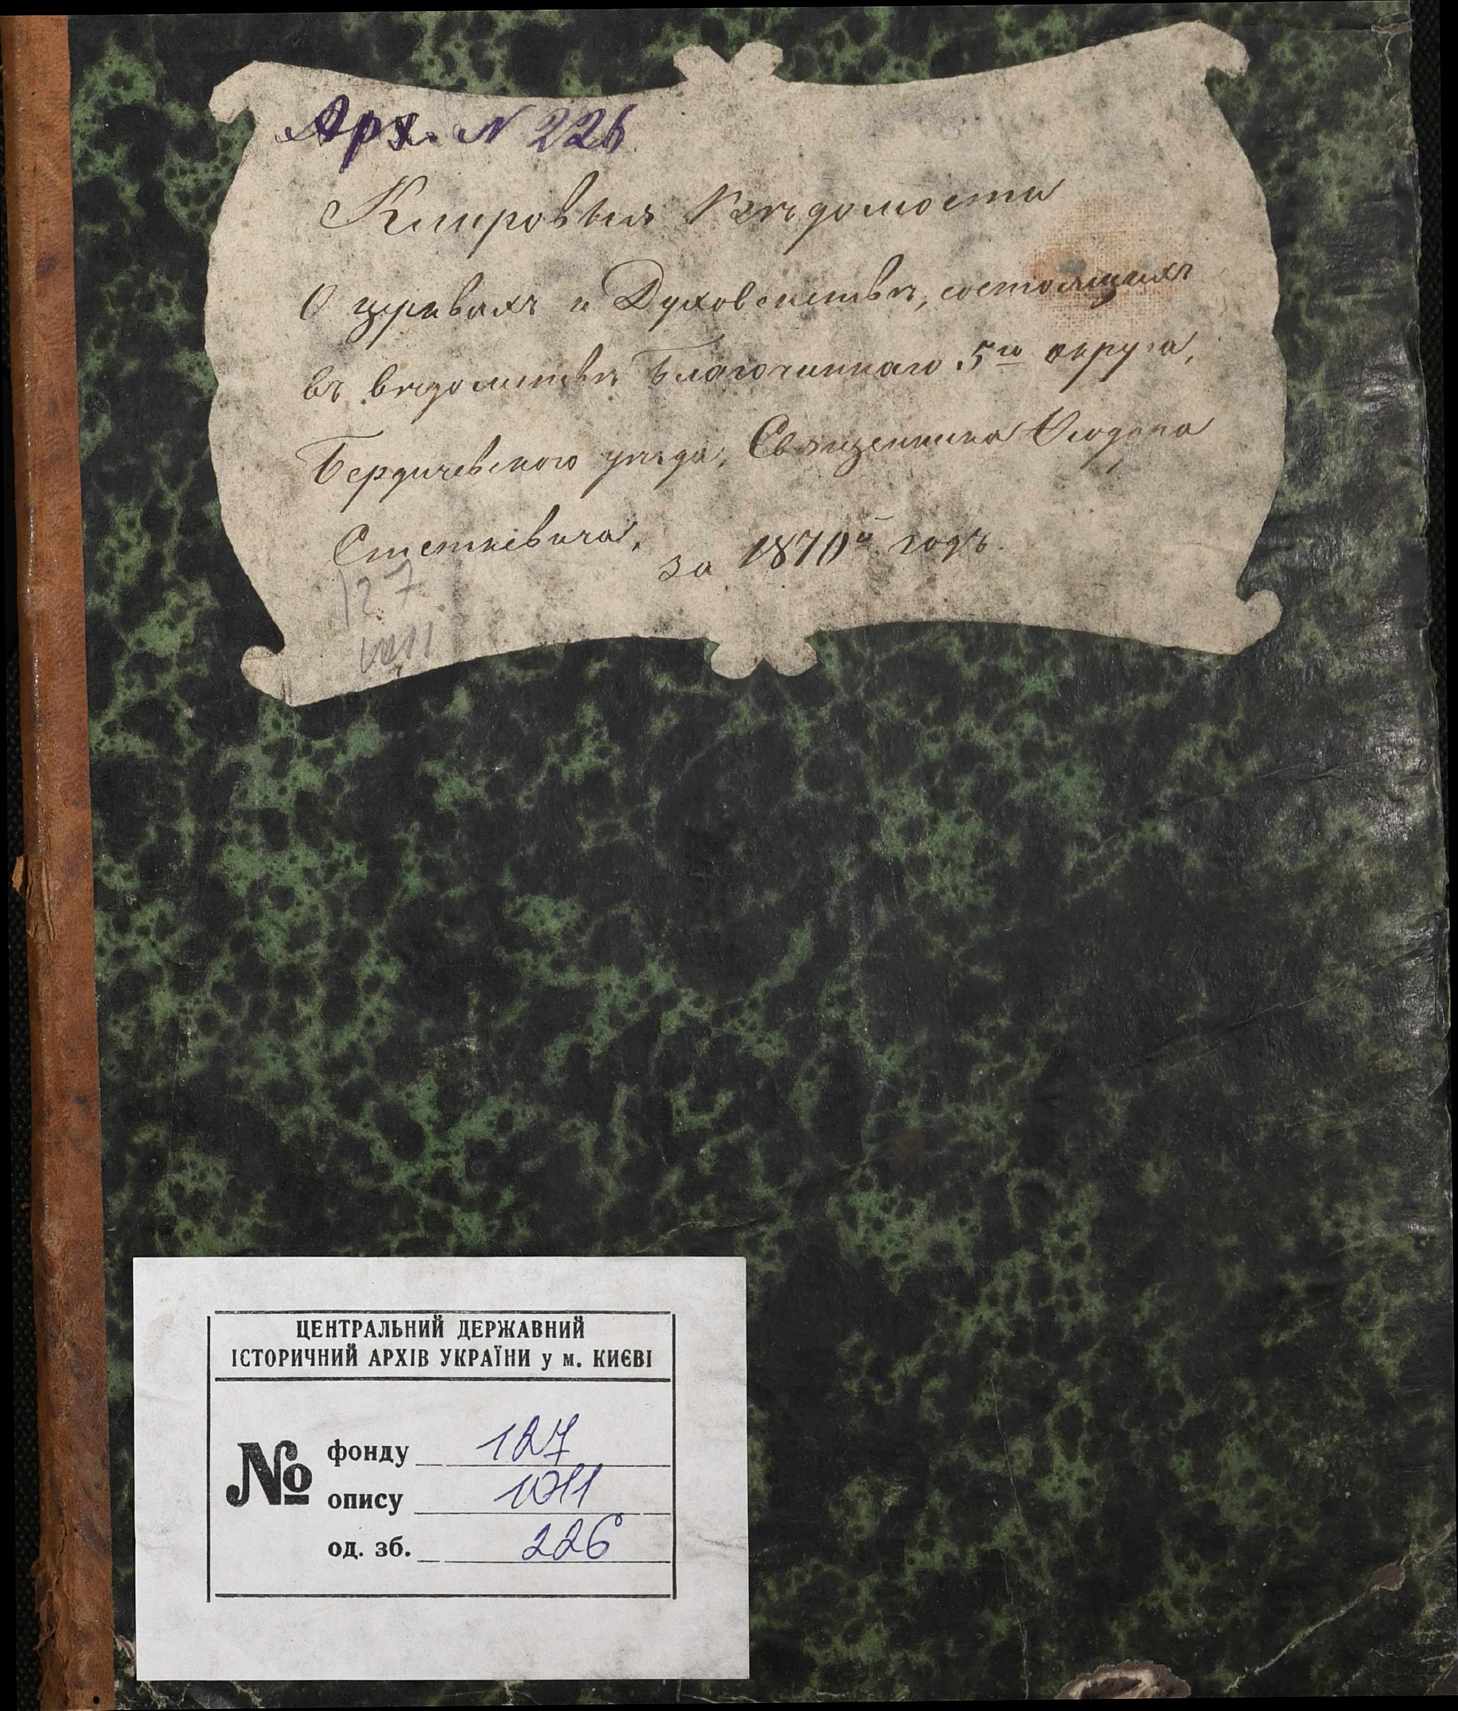 Арх. № 226
Клировыя Вѣдомости
О церквахъ и Духовенствѣ, состоящихъ
въ вѣдомствѣ Благочиннаго 5го округа,
Бердичевского уѣзда, Священника Ѳеодора
Стеткевича,
за 1870й годъ.
127
1011
ЦЕНТРАЛЬНИЙ ДЕРЖАВНИЙ
ІСТОРИЧНИЙ АРХІВ УКРАЇНИ у м. КИЄВІ
№ фонду 127
опису 1011
од. зб. 226